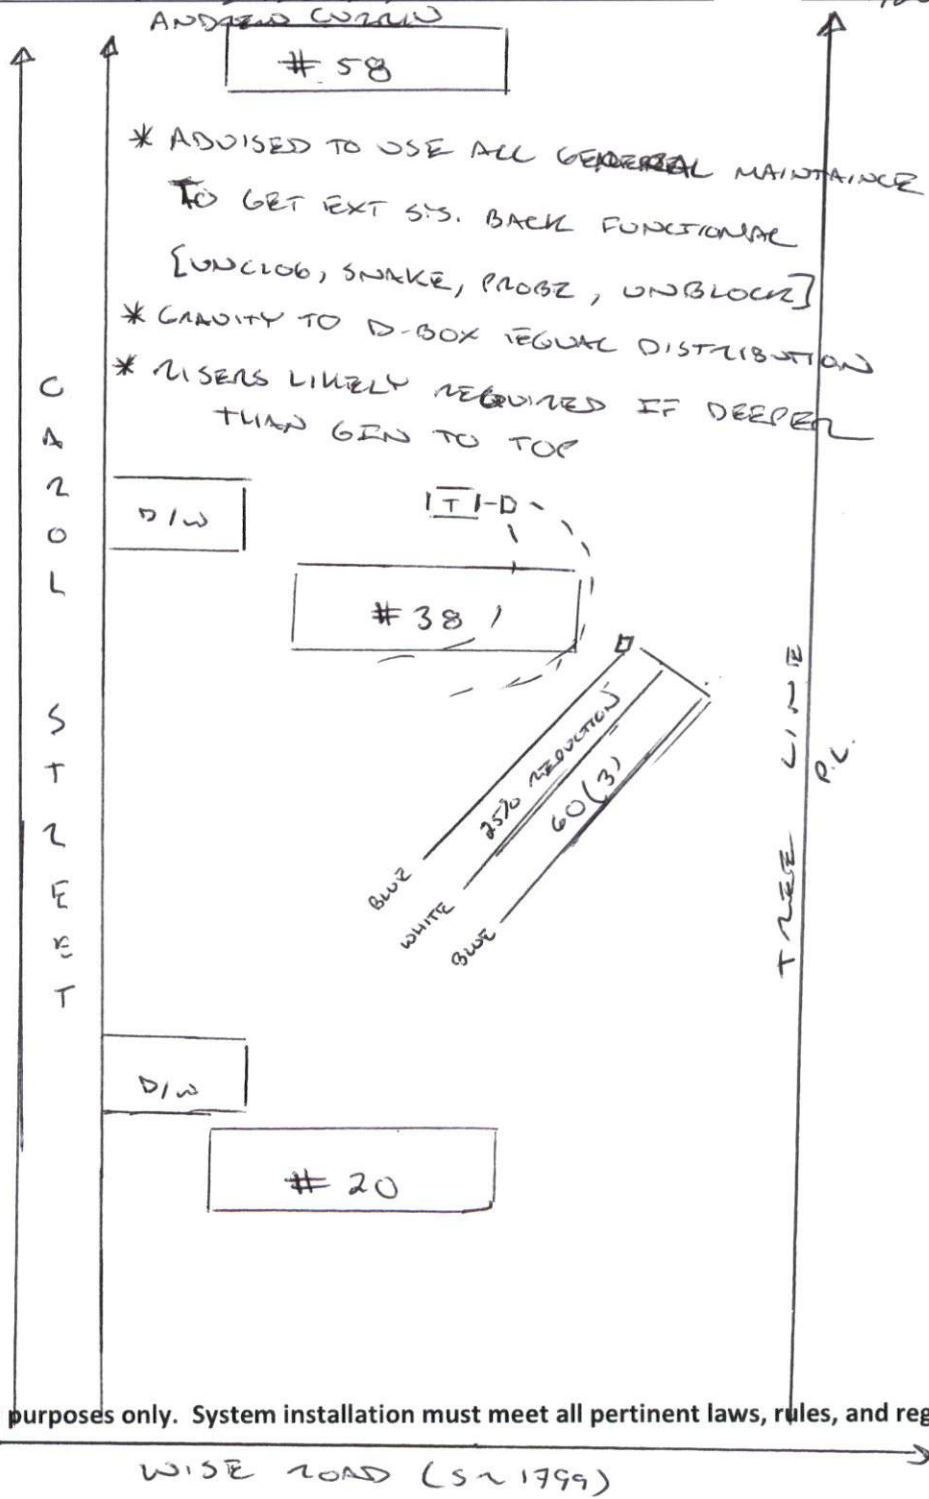 # 58
* ADVISED TO USE ALL GENERAL MAINTAINCE
TO GET EXT SYS. BACK FUNCTIONAL
[UNCLOG, SNAKE, PROBE, UNBLOCK]
* GRAVITY TO D-BOX EQUAL DISTRIBUTION
* RISERS LIKELY REQUIRED IF DEEPER
THAN 6IN TO TOP
CAROL STREET
D/W
T D
# 38
25% REDUCTION
60(3)
BLUE
WHITE
BLUE
TREE LINE
P.L.
D/W
# 20
purposes only. System installation must meet all pertinent laws, rules, and reg
WISE ROAD (SR 1799)